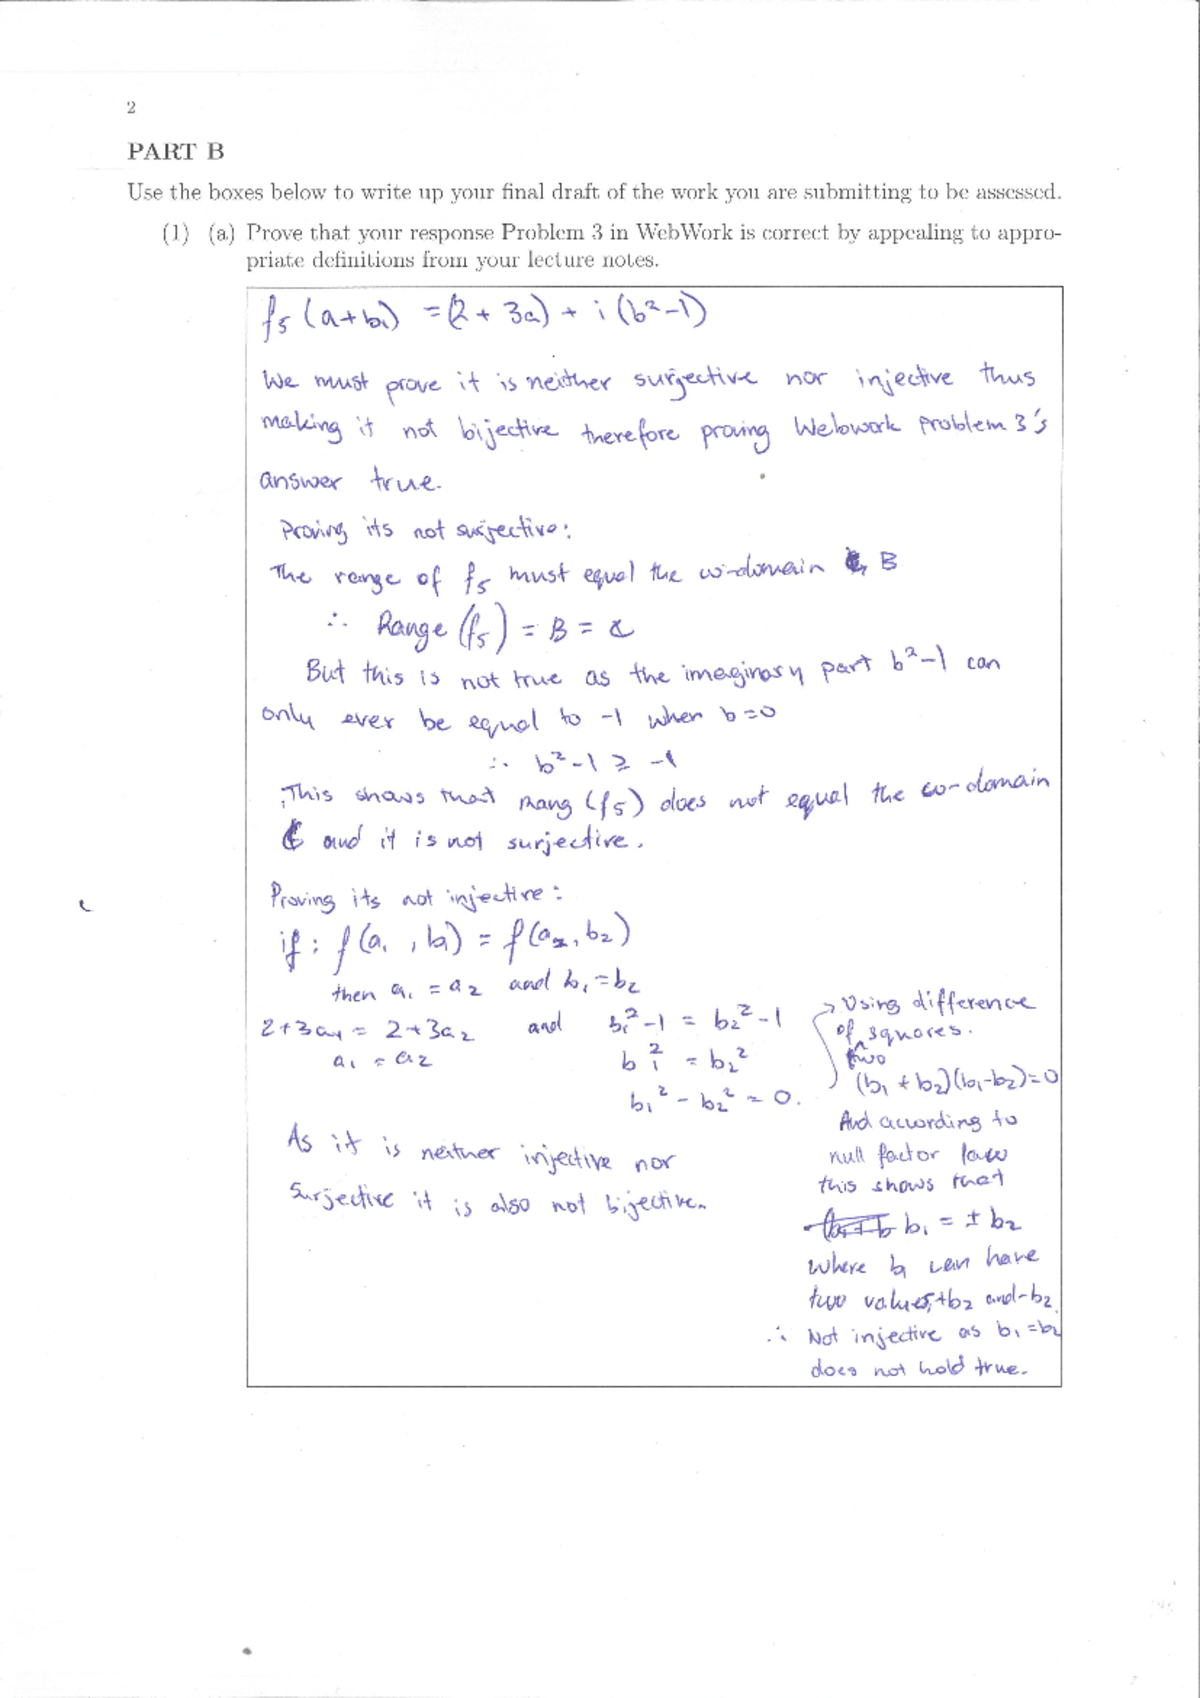 2
PART B
Use the boxes below to write up your final draft of the work you are submitting to be assessed.
(1) (a) Prove that your response Problem 3 in WebWork is correct by appealing to appro-
priate definitions from your lecture notes.
f₅ (a+bi) = (2 + 3a) + i (b²-1)
We must prove it is neither surjective nor injective thus
making it not bijective therefore proving Webwork problem 3's
answer true.
Proving its not surjective:
The range of f₅ must equal the co-domain B
∴ Range (f₅) = B = ℂ
But this is not true as the imaginary part b²-1 can
only ever be equal to -1 when b=0
∴ b²-1 ≥ -1
This shows that rang (f₅) does not equal the co-domain
ℂ and it is not surjective.
Proving its not injective:
if: f(a₁, b₁) = f(a₂, b₂)
then a₁ = a₂ and b₁ = b₂
2+3a₁ = 2+3a₂ and b₁²-1 = b₂²-1
a₁ = a₂ b₁² = b₂²
b₁² - b₂² = 0.
→ Using difference
of two squares.
(b₁ + b₂)(b₁-b₂)=0
And according to
null factor law
this shows that
b₁ = ± b₂
where b₁ can have
two values, +b₂ and -b₂
∴ Not injective as b₁=b₂
does not hold true.
As it is neither injective nor
Surjective it is also not bijective.